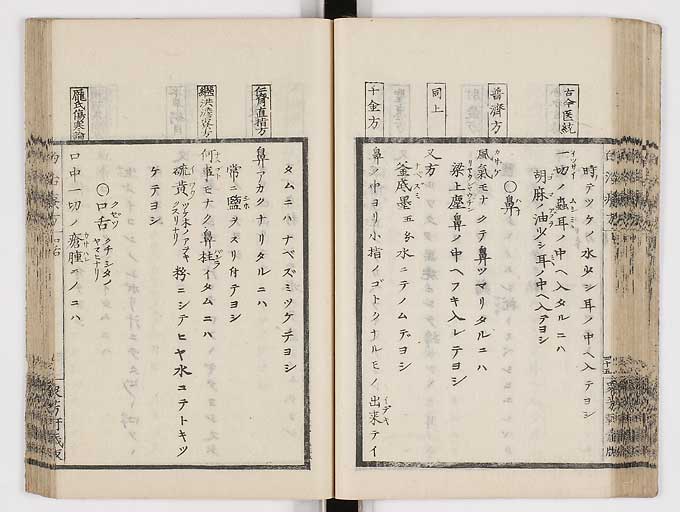 時テツケノ水少シ耳ノ中ヘ入テヨシ
古今医統
一切ノ蟲耳ノ中ヘ入タルニハ
胡麻ノ油少シ耳ノ中ヘ入テヨシ
○鼻
ハナ
普濟方
風氣モナクテ鼻ツマリタルニハ
カゼケ
梁上塵鼻ノ中ヘフキ入レテヨシ
同上
又方
釜底墨五分水ニテノムデヨシ
ナベズミ
千金方
鼻ノ中ヨリ小指イゴトクナルモノ出来テイ
タムニハナベズミツケテヨシ
仁齋直指方
鼻アカクナリタルニハ
常ニ鹽ヲスリ付テヨシ
シホ
繼洪澹寮方
何事モナク鼻柱イタムニハ
硫黄 ツケ木ノアヲキクスリナリ 粉ニシテヒヤ水ニテトキツ
ケテヨシ
○口舌 クチシタノヤマヒナリ
クゼツ
龐氏傷寒論
口中一切ノ瘡腫モノニハ